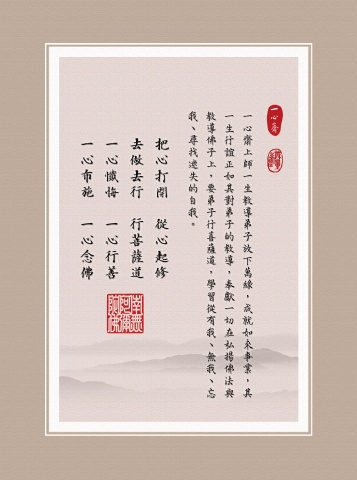 一心齋
一心齋上師一生教導弟子放下萬緣，成就如來事業，其
一生行誼正如其對弟子的教導，奉獻一切在弘揚佛法與
教導佛子上，要弟子行菩薩道，學習從有我、無我、忘
我、尋找迷失的自我。
把心打開　從心起修
去做去行　行菩薩道
一心懺悔　一心行善
一心布施　一心念佛
南無阿彌陀佛